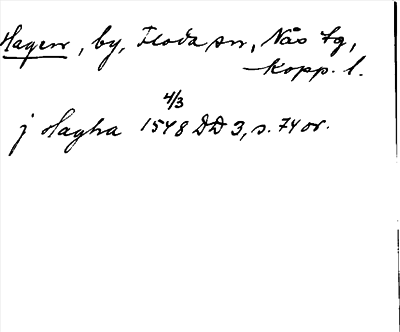 Hagen, by, Floda sn, Nås tg,
Kopp. l.
4/3
j Hagha 1548 DD 3, s. 74 or.